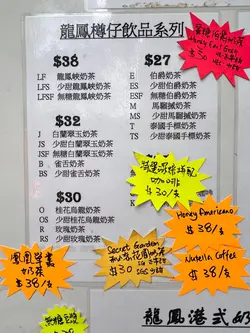 龍鳳樽仔飲品系列
$38
LF 龍鳳峽奶茶
LFS 少甜龍鳳峽奶茶
LSF 無糖龍鳳峽奶茶
$32
J 白蘭翠玉奶茶
JS 少甜白蘭翠玉奶茶
JSF 無糖白蘭翠玉奶茶
B 雀舌奶茶
BS 少甜雀舌奶茶
$30
O 桂花烏龍奶茶
OS 少甜桂花烏龍奶茶
R 玫瑰奶茶
RS 少甜玫瑰奶茶
$27
E 伯爵奶茶
ES 少甜伯爵奶茶
ESF 無糖伯爵奶茶
M 馬騮搣奶茶
MS 少甜馬騮搣奶茶
T 泰國手標奶茶
TS 少甜泰國手標奶茶
Honey Earl Grey
$30
$30/支
Honey Americano
$38/支
Nutella Coffee
$38/支
Secret Garden
$30
奶茶
$38/支
無糖豆漿
龍鳳港式奶